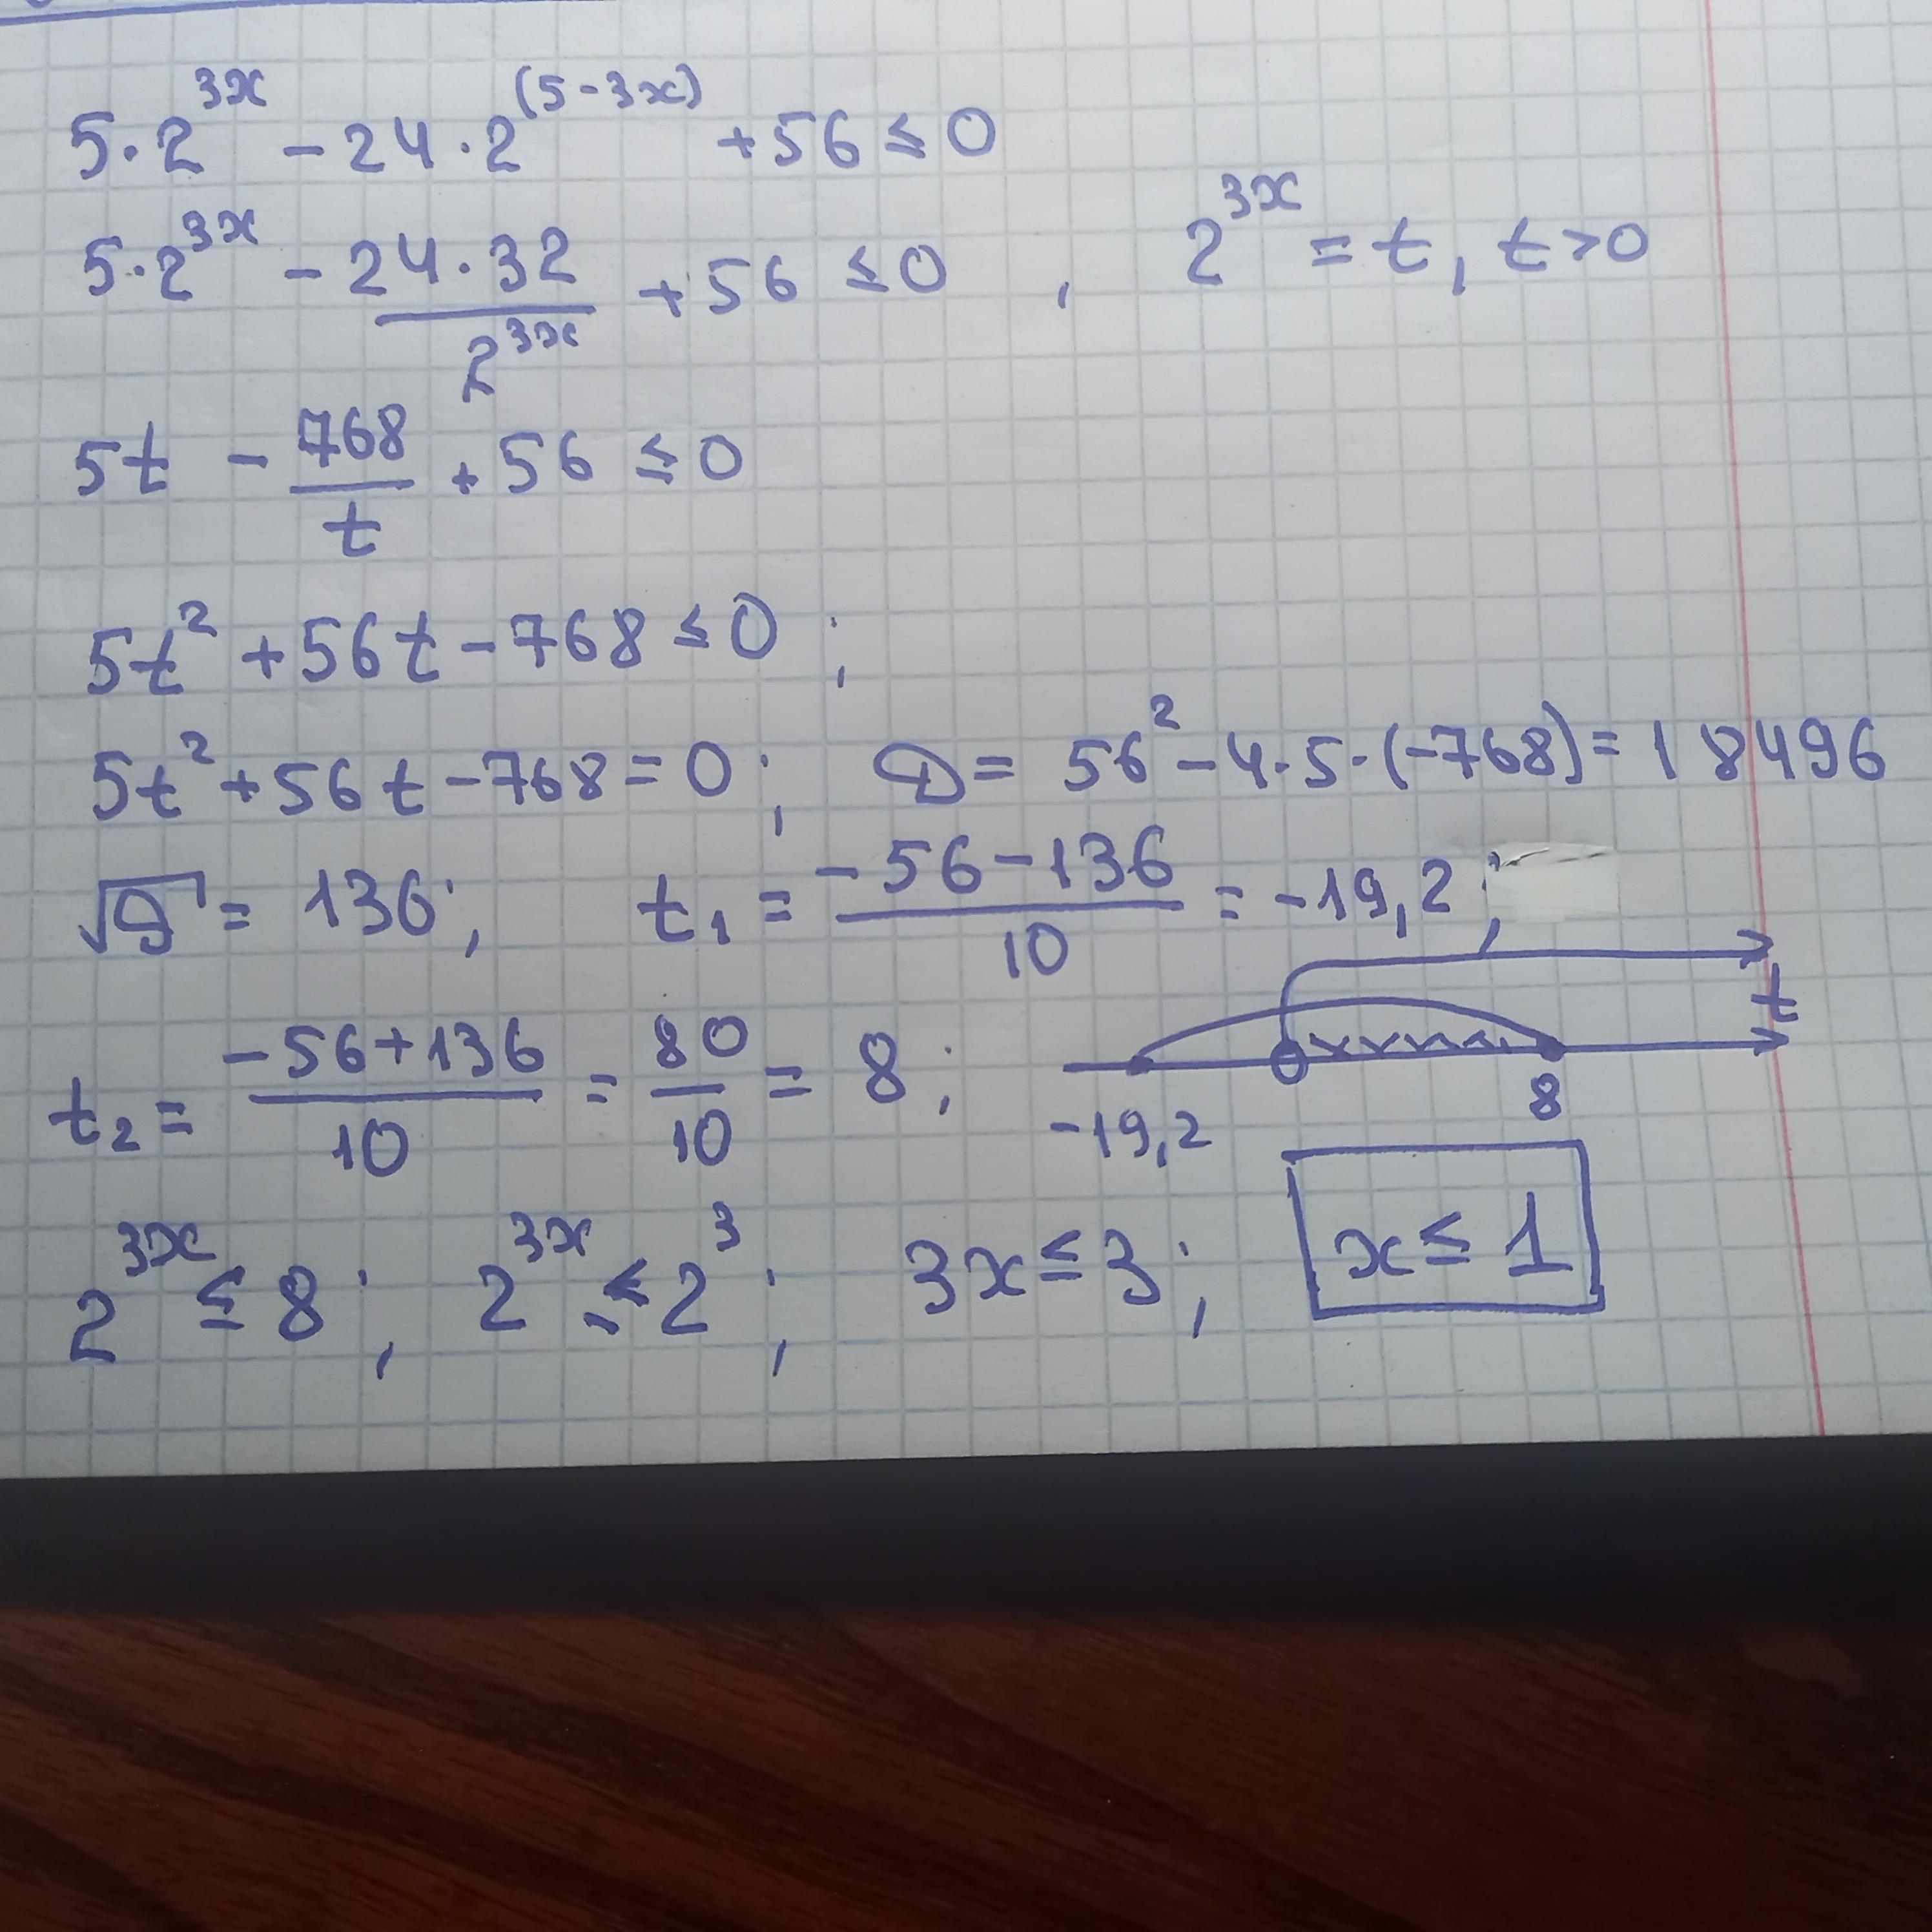 5·2^{3x} - 24·2^{(5-3x)} + 56 ≤ 0
5·2^{3x} - \frac{24·32}{2^{3x}} + 56 ≤ 0 , 2^{3x} = t, t>0
5t - \frac{768}{t} + 56 ≤ 0
5t² + 56t - 768 ≤ 0 ;
5t² + 56t - 768 = 0 ; D = 56² - 4·5·(-768) = 18496
√D = 136 ; t₁ = \frac{-56-136}{10} = -19,2 ;
t₂ = \frac{-56+136}{10} = \frac{80}{10} = 8 ;
t
-19,2 8
2^{3x} ≤ 8 ; 2^{3x} ≤ 2³ ; 3x ≤ 3 ; x ≤ 1